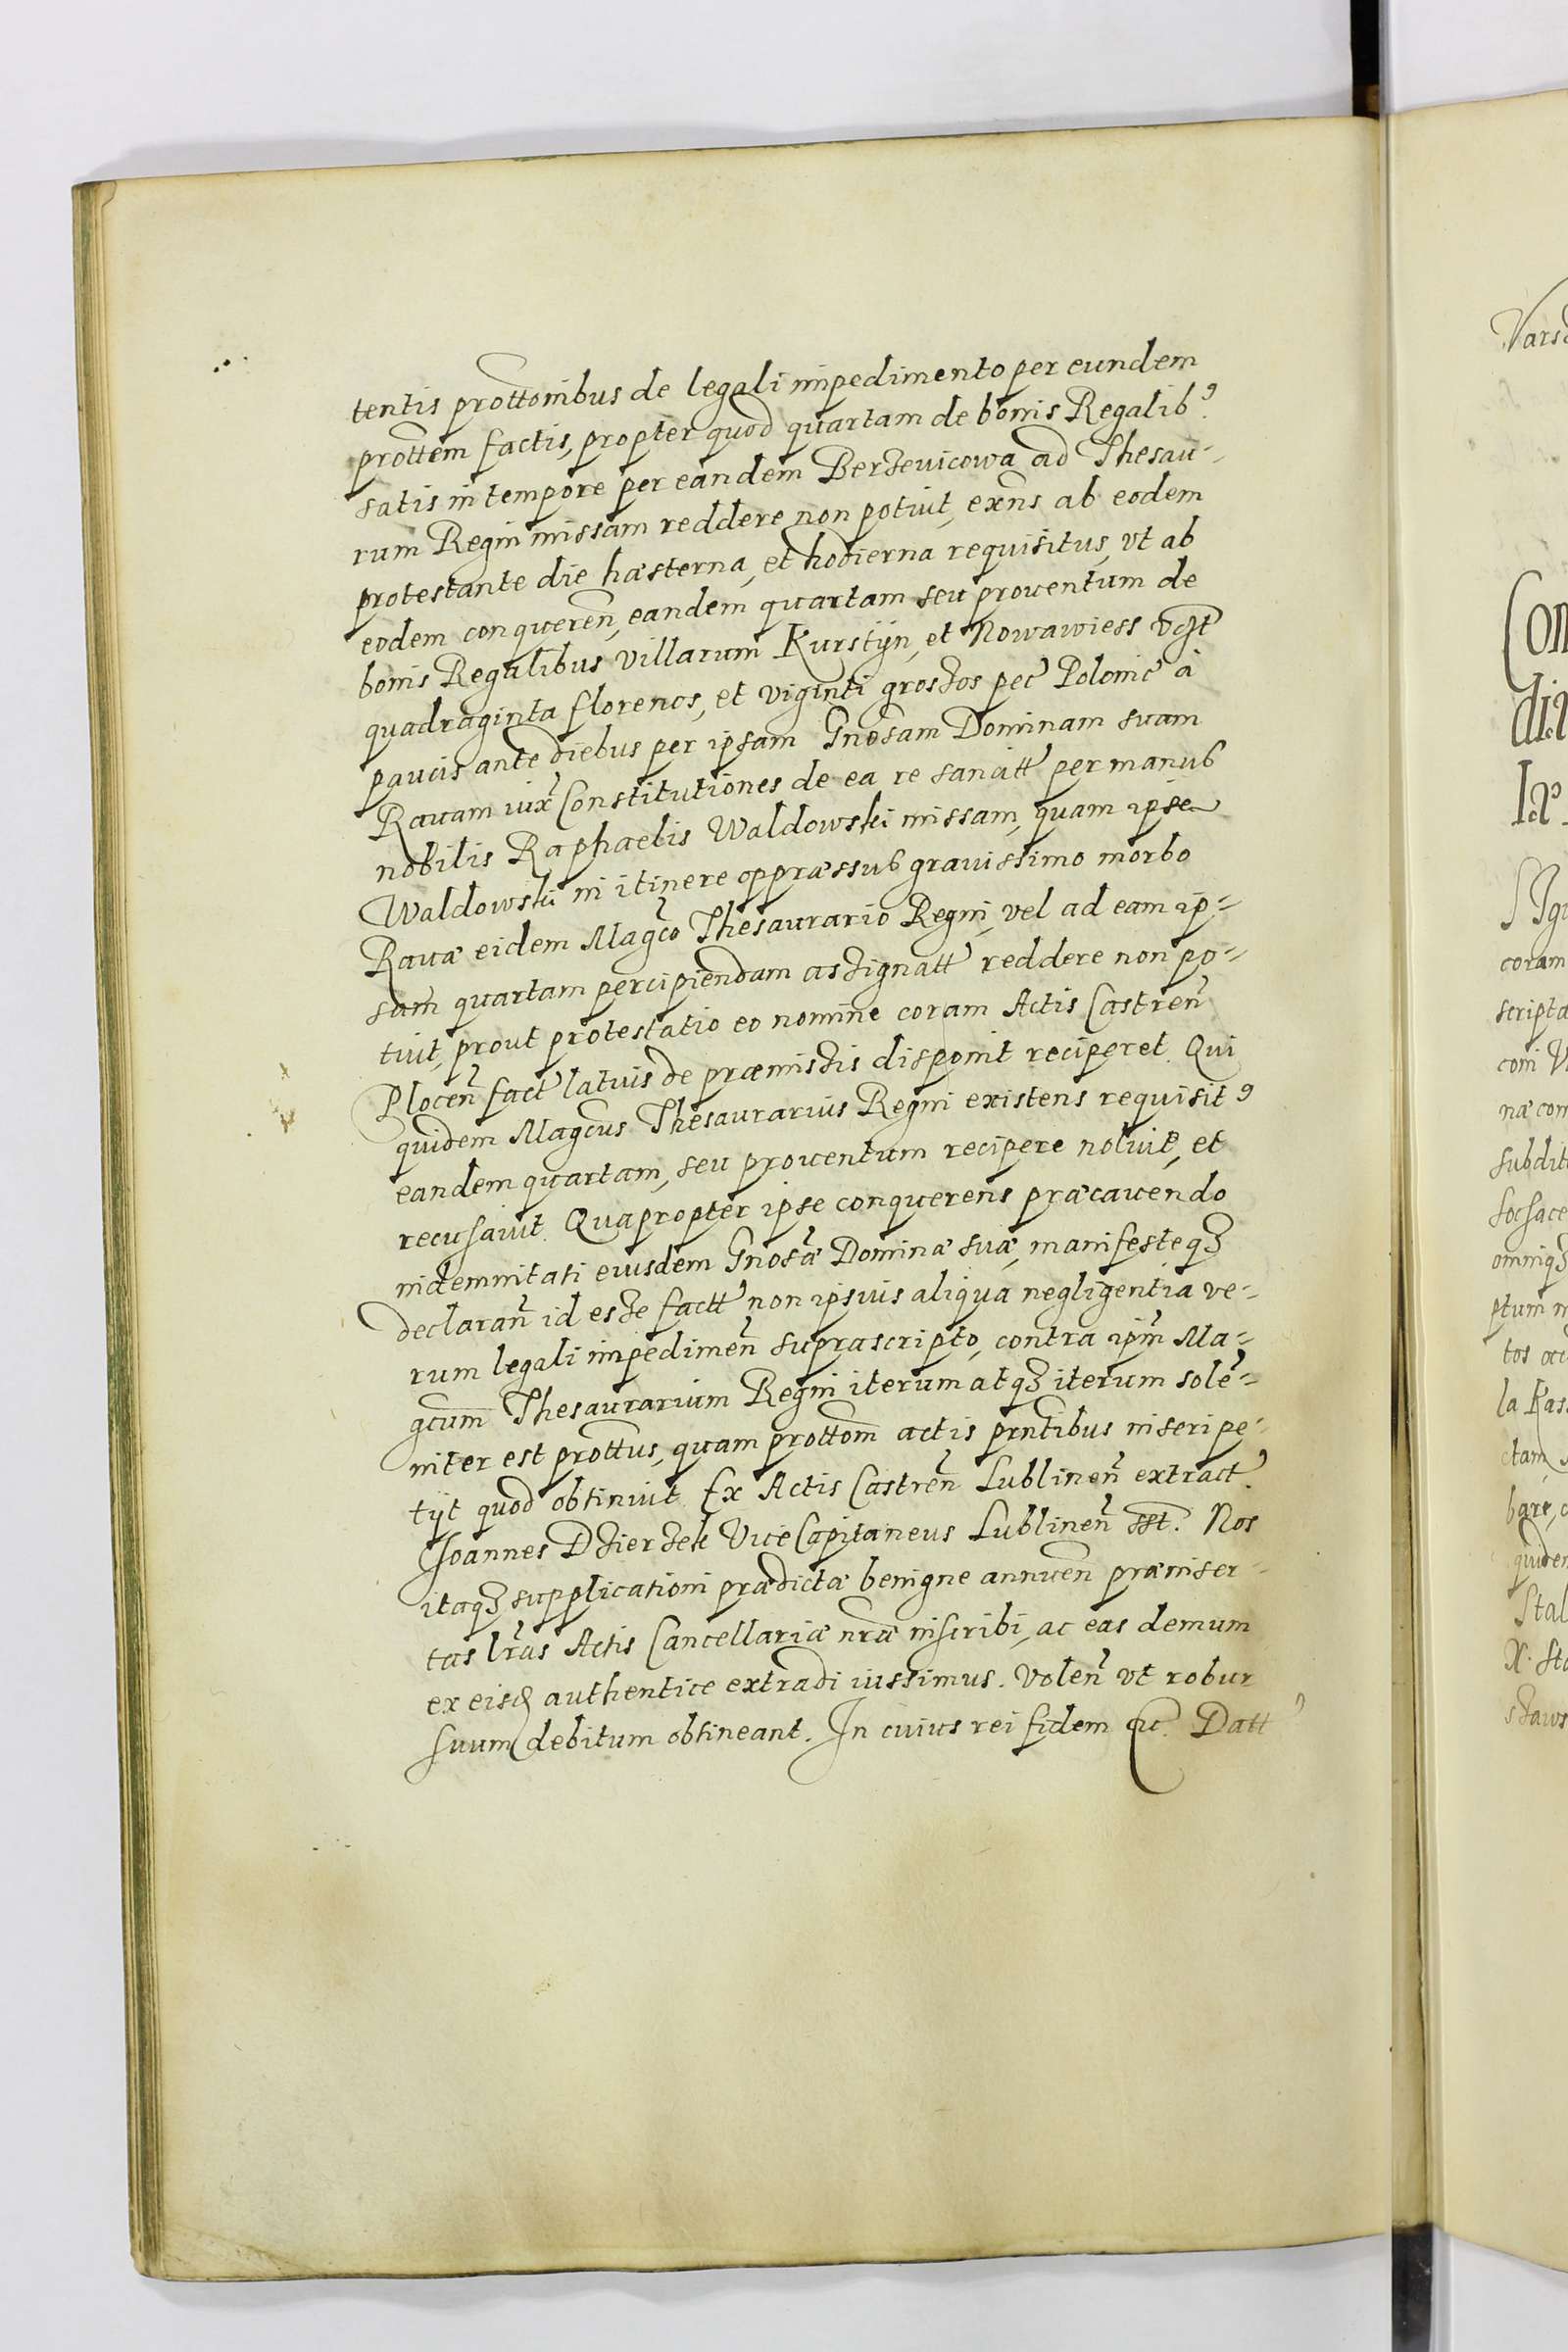 tentis prottonibus de legali impedimento per eundem
prottem factis, propter quod quartam de bonis Regalibꝰ
satis in tempore per eandem Berzeuicowa ad Thesau-
rum Regni missam reddere non potuit, exns ab eodem
protestante die hæsterna, et hodierna requisitus, vt ab
eodem conqueren, eandem quartam seu prouentum de
bonis Regalibus villarum Kurstÿn, et Nowawiess
quadraginta florenos, et viginti groszos pec Polonic à
paucis ante diebus per ipsam Gnosam Dominam suam
Rauam iux Constitutiones de ea re sancitt per manus
nobilis Raphaelis Waldowski missam, quam ipse
Waldowski in itinere oppræssus grauissimo morbo
Rauæ eidem Magco Thesaurario Regni, vel ad eam ip-
sam quartam percipiendam aszignatt reddere non po-
tuit, prout protestatio eo nomine coram Actis Castren
Plocen fact latius de præmiszis disponit reciperet. Qui
quidem Magcus Thesaurarius Regni existens requisitꝰ
eandem quartam, seu prouentum recipere noluit, et
recusauit. Quapropter ipse conquerens præcauendo
indemnitati eiusdem Gnosæ Dominæ suæ, manifesteqꝫ
declaran id esze factt non ipsius aliqua negligentia ve-
rum legali impedimen suprascripto, contra ipm Ma-
gcum Thesaurarium Regni iterum atqꝫ iterum sole-
niter est prottus, quam prottom actis prntibus inseri pe-
tÿt quod obtinuit. Ex Actis Castren Lublinen extract
Joannes Dzierzek ViceCapitaneus Lublinen sst. Nos
itaqꝫ supplicationi prædictæ benigne annuen præinser-
tas lras Actis Cancellariæ nræ inscribi, ac eas demum
ex eisd authentice extradi iussimus. Volen vt robur
suum debitum obtineant. In cuius rei fidem etc. Datt
Vars
Con
di
Ia
coram
scripta
coni V
næ com
subdit
socsace
omniqꝫ
ptum in
tos
la Kas
ctam
bare,
quidem
Stal
X. Sta
szaws